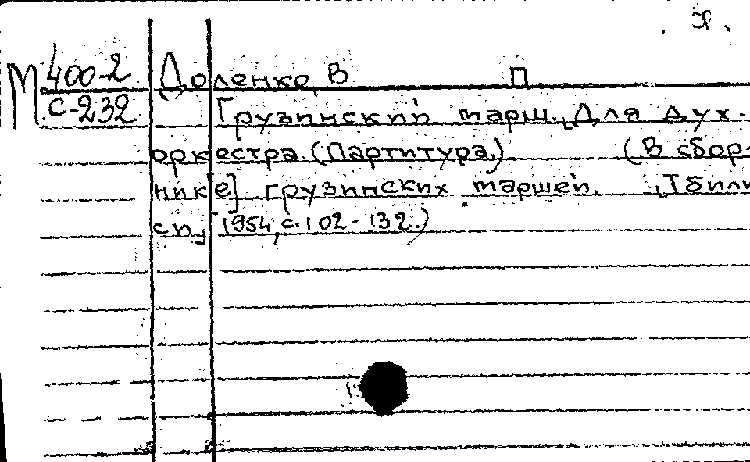 М 400-2 Доленко, В П
С-232 Грузинский марш. [Для дух.
оркестра. (Партитура.) (В сбор-
нике] грузинских маршей. [Тбили-
си,] 1954, с. 102-132.)